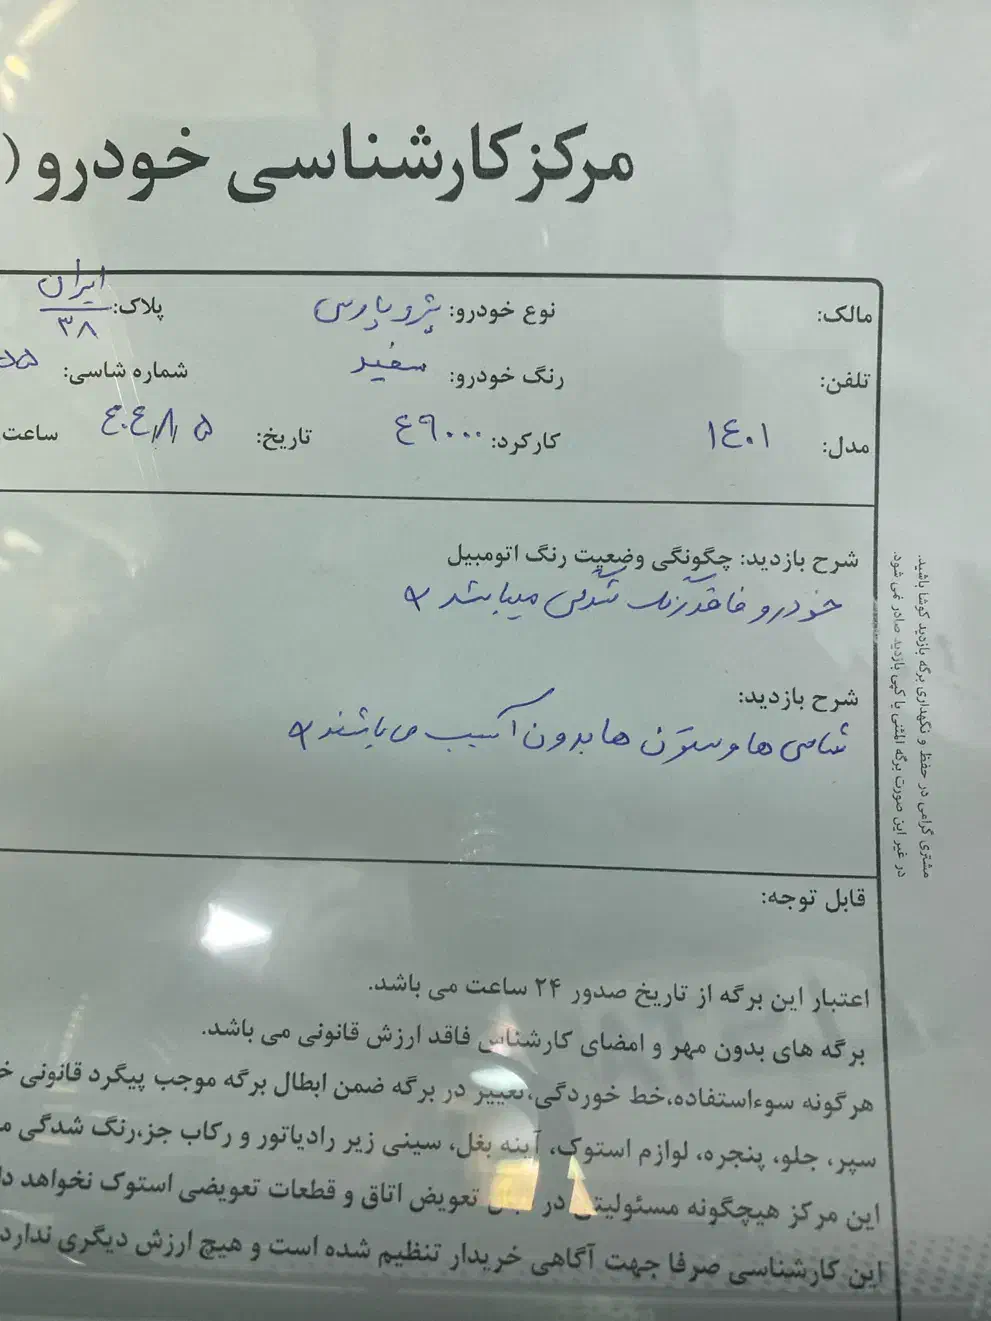 مرکز کارشناسی خودرو (
مالک: نوع خودرو: پژو پارس پلاک: ایران ۳۸
تلفن: رنگ خودرو: سفید شماره شاسی:
مدل: ۱۴۰۱ کارکرد: ۴۹۰۰۰ تاریخ: ۴۰۴/۸/۵ ساعت
شرح بازدید: چگونگی وضعیت رنگ اتومبیل
خودرو فاقد رنگ شدگی میباشد
شرح بازدید:
شاسی ها و ستون ها بدون آسیب می باشند
قابل توجه:
اعتبار این برگه از تاریخ صدور ۲۴ ساعت می باشد.
برگه های بدون مهر و امضای کارشناس فاقد ارزش قانونی می باشد.
هرگونه سوءاستفاده،خط خوردگی،تغییر در برگه ضمن ابطال برگه موجب پیگرد قانونی
سپر، جلو، پنجره، لوازم استوک، آینه بغل، سینی زیر رادیاتور و رکاب جز،رنگ شدگی
این مرکز هیچگونه مسئولیتی در تعویض اتاق و قطعات تعویضی استوک نخواهد
این کارشناسی صرفا جهت آگاهی خریدار تنظیم شده است و هیچ ارزش دیگری ندارد
مشتری گرامی در حفظ و نگهداری برگه بازدید کوشا باشید.
در غیر این صورت برگه المثنی یا کپی بازدید صادر نمی شود.